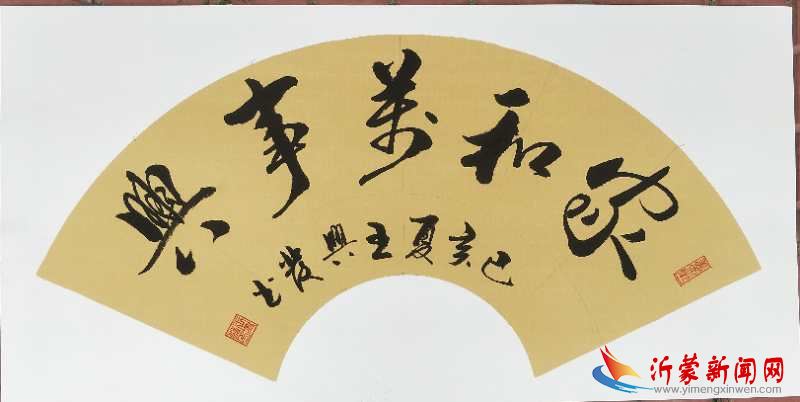 家和萬事興
己亥夏王興發书
沂蒙新闻网
www.yimengxinwen.com